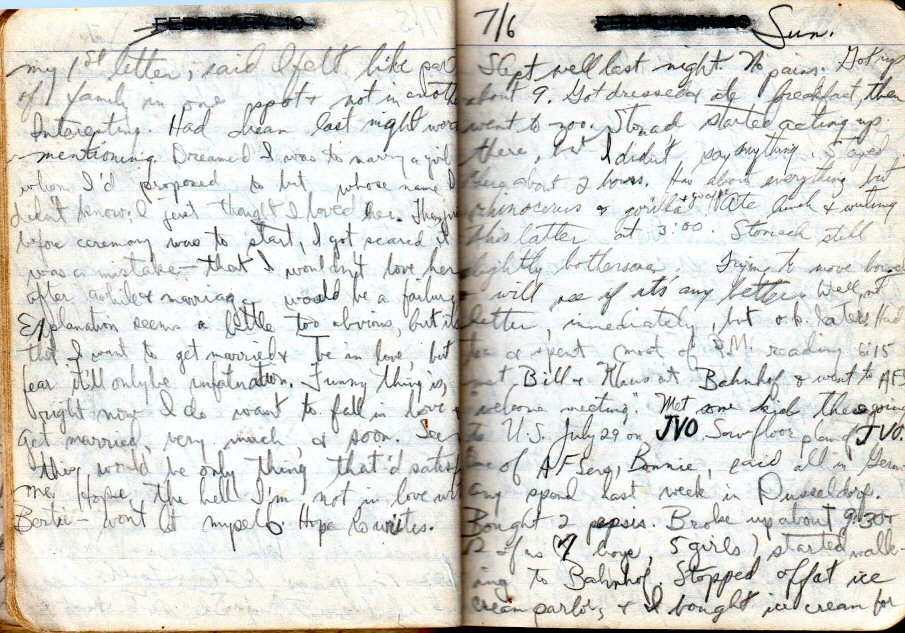 my 1st letter; said I felt like part
of 1 family in one spot & not in another
Interesting. Had dream last night worth
mentioning. Dreamed I was to marry a girl
whom I'd proposed to but whose name I
didn't know. I just thought I loved her. Then just
before ceremony was to start, I got scared it
was a mistake – that I wouldn't love her
after awhile & marriage would be a failure
Explanation seems a little too obvious, but it's
that I want to get married & be in love, but
fear it'll only be infatuation. Funny thing is,
right now I do want to fall in love &
get married, very much, & soon.
this would be only thing that'd satisfy
me. Hope the hell I'm not in love with
Bertie – won't let myself. Hope writes.
7/6 Sun.
Slept well last night. No pains. Got up
about 9. Got dressed & ate breakfast, then
went to zoo. Stomach started acting up
there, but I didn't say anything. Stayed
there about 2 hours. Has about everything but
rhinocerus & gorilla. Ate lunch & writing
this latter at 3:00. Stomach still
slightly bothersome. Trying to move bowels
& will see if it's any better. Well, not
better, immediately, but o.k. later. Had
tea & spent most of P.M. reading. 6:15
met Bill & Klaus at Bahnhof & went to AFS
"welcome meeting." Met some kids there going
to U.S. July 29 on JVO. Saw floor plan of JVO.
One of AFSers, Bonnie, said all in Germ-
any spend last week in Dusseldorf.
Bought 2 pepsis. Broke up about 9:30 &
12 of us (7 boys, 5 girls) started walk-
ing to Bahnhof. Stopped off at ice
cream parlor, & I bought ice cream for